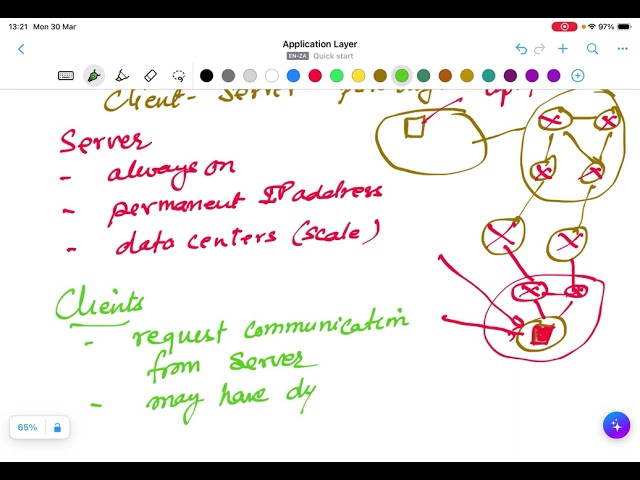 13:21 Mon 30 Mar
97%
Application Layer
EN-ZA Quick start
Client-Server
Server
- always on
- permanent IP address
- data centers (scale)
Clients
- request communication
from server
- may have dy
65%